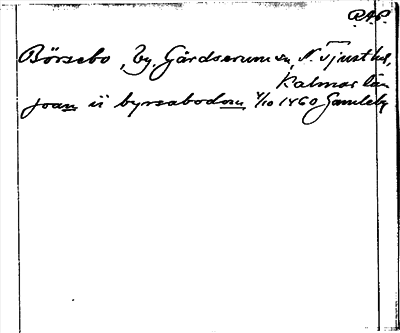 RAP.
Börsebo, By, Gärdserum sn, N. Tjust hd,
Kalmar län
joan ii byrsabodom 4/10 1460 Gamleby